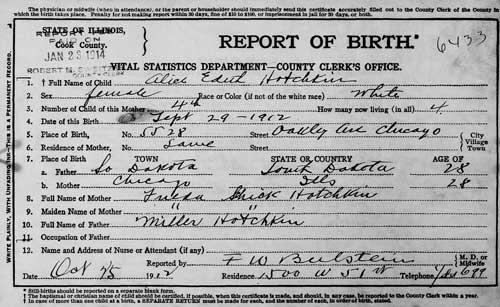 The physician or midwife (when in attendance), or the parent or householder should immediately send this certificate accurately filled out to the County Clerk of the County in
which the birth takes place. Penalty for not making report within 30 days, fine of $10 to $100, or imprisonment in jail for 30 days, or both.
STATE OF ILLINOIS,
Cook County.
REPORT FEE
PAID ON
JAN 23 1914
ROBERT M. SWEITZER
REPORT OF BIRTH. 6433
VITAL STATISTICS DEPARTMENT—COUNTY CLERK'S OFFICE.
1. † Full Name of Child Alice Edith Hotchkin
2. Sex female Race or Color (if not of the white race) White
3. Number of Child of this Mother 4th How many now living (in all) 4
4. Date of this Birth Sept 29 - 1912
5. Place of Birth, No. 5528 Street Oakley Ave Chicago
6. Residence of Mother, No. Same Street
City
Village
Town
7. Place of Birth TOWN STATE OR COUNTRY AGE OF
a. Father So Dakota South Dakota 28
b. Mother Chicago Ills 28
8. Full Name of Mother Shick Hotchkin
9. Maiden Name of Mother " "
10. Full Name of Father Miller Hotchkin
11. Occupation of Father
12. Name and Address of Nurse or Attendant (if any)
Reported by F W M. D. or Midwife
Date Oct 25 1912 Residence 1500 W 51 St Telephone Yds 699
*Still-births should be reported on a separate blank form.
† The baptismal or christian name of child should be certified, if possible, when this certificate is made, and should, in any case, be reported to the County Clerk within a year.
‡ In case of more than one child at a birth, a SEPARATE RETURN must be made for each, and the number of each, in order of birth, stated.
Write Plainly, With Unfading Ink—This is a Permanent Record.